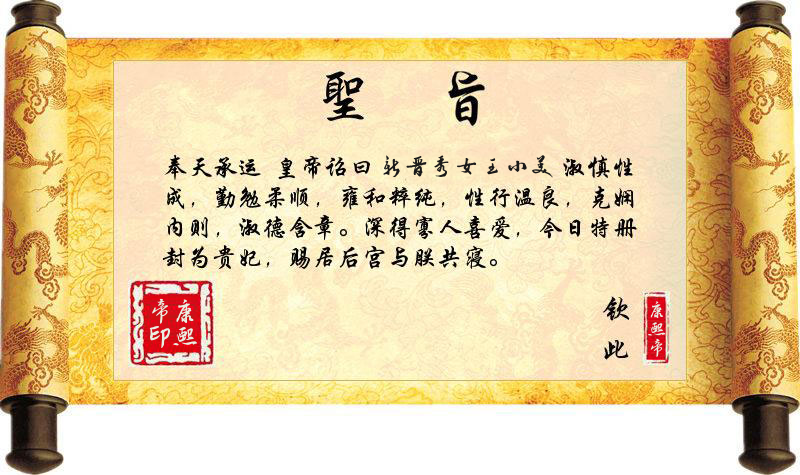 聖旨
奉天承运 皇帝诏曰 新晋秀女王小美 淑慎性
成，勤勉柔顺，雍和粹纯，性行温良，克娴
内则，淑德含章。深得寡人喜爱，今日特册
封为贵妃，赐居后宫与朕共寝。
钦此
康熙帝印
康熙帝